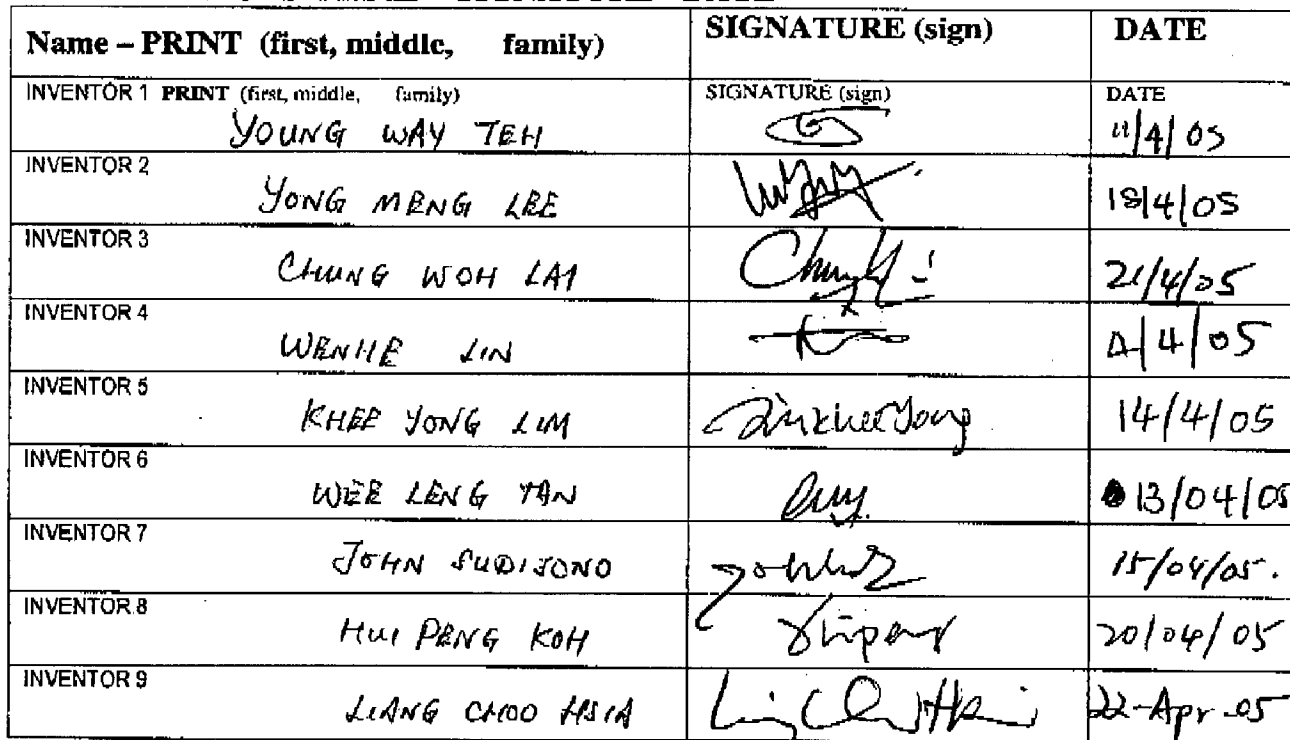 Name – PRINT (first, middle, family) SIGNATURE (sign) DATE
INVENTOR 1 PRINT (first, middle, family) SIGNATURE (sign) DATE
YOUNG WAY TEH 11/4/05
INVENTOR 2
YONG MENG LEE 18/4/05
INVENTOR 3
CHUNG WOH LAI 21/4/05
INVENTOR 4
WENHE LIN /4/05
INVENTOR 5
KHEE YONG LIM LimKheeYong 14/4/05
INVENTOR 6
WEE LENG TAN 13/04/05
INVENTOR 7
JOHN SUDIJONO 15/04/05.
INVENTOR 8
HUI PENG KOH 20/04/05
INVENTOR 9
LIANG CHOO HSIA 22-Apr-05